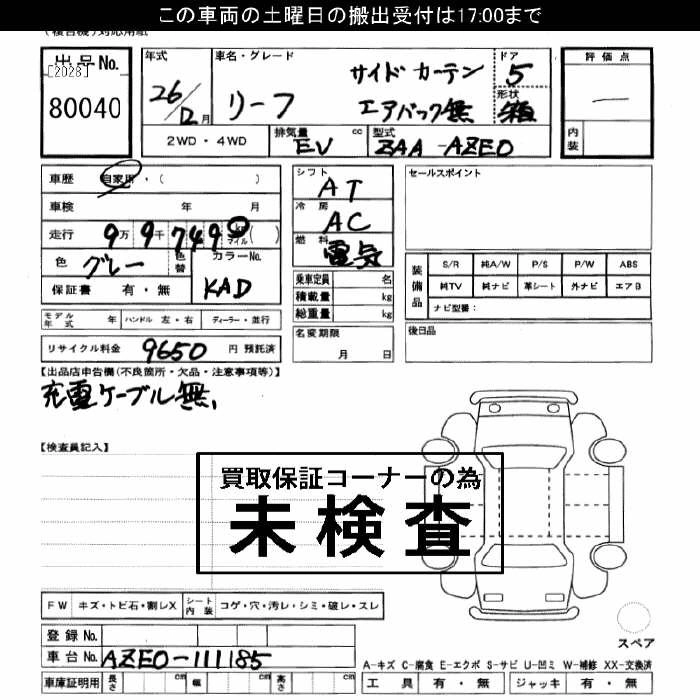 この車両の土曜日の搬出受付は17:00まで
出品No.
[2028]
80040
年式
26/12月
車名・グレード
リーフ
サイド カーテン
エアバック無
ドア
5
形状
箱
評価点
—
内装
2WD・4WD
排気量
EV
cc
型式
ZAA-AZE0
車歴
自家用・( )
車検 年 月
走行 9万9千749 km マイル ( )
色
グレー
色替
カラーNo.
KAD
保証書 有・無
シフト
AT
冷房
AC
燃料
電気
乗車定員 名
積載量 kg
総重量 kg
セールスポイント
装備品
S/R 純A/W P/S P/W ABS
純TV 純ナビ 革シート 外ナビ エアB
ナビ型番:
モデル年式 年 ハンドル 左・右 ディーラー・並行
リサイクル料金 9650 円 預託済
名変期限
月 日
後日品
【出品店申告欄(不良箇所・欠品・注意事項等)】
充電ケーブル無,
【検査員記入】
買取保証コーナーの為
未検査
FW キズ・トビ石・割レX シート内装 コゲ・穴・汚レ・シミ・破レ・スレ
登録No.
車台No. AZE0-111185
車庫証明用 長さ cm 幅 cm 高さ cm
スペア
A-キズ C-腐食 E-エクボ S-サビ U-凹ミ W-補修 XX-交換済
工具 有・無 ジャッキ 有・無